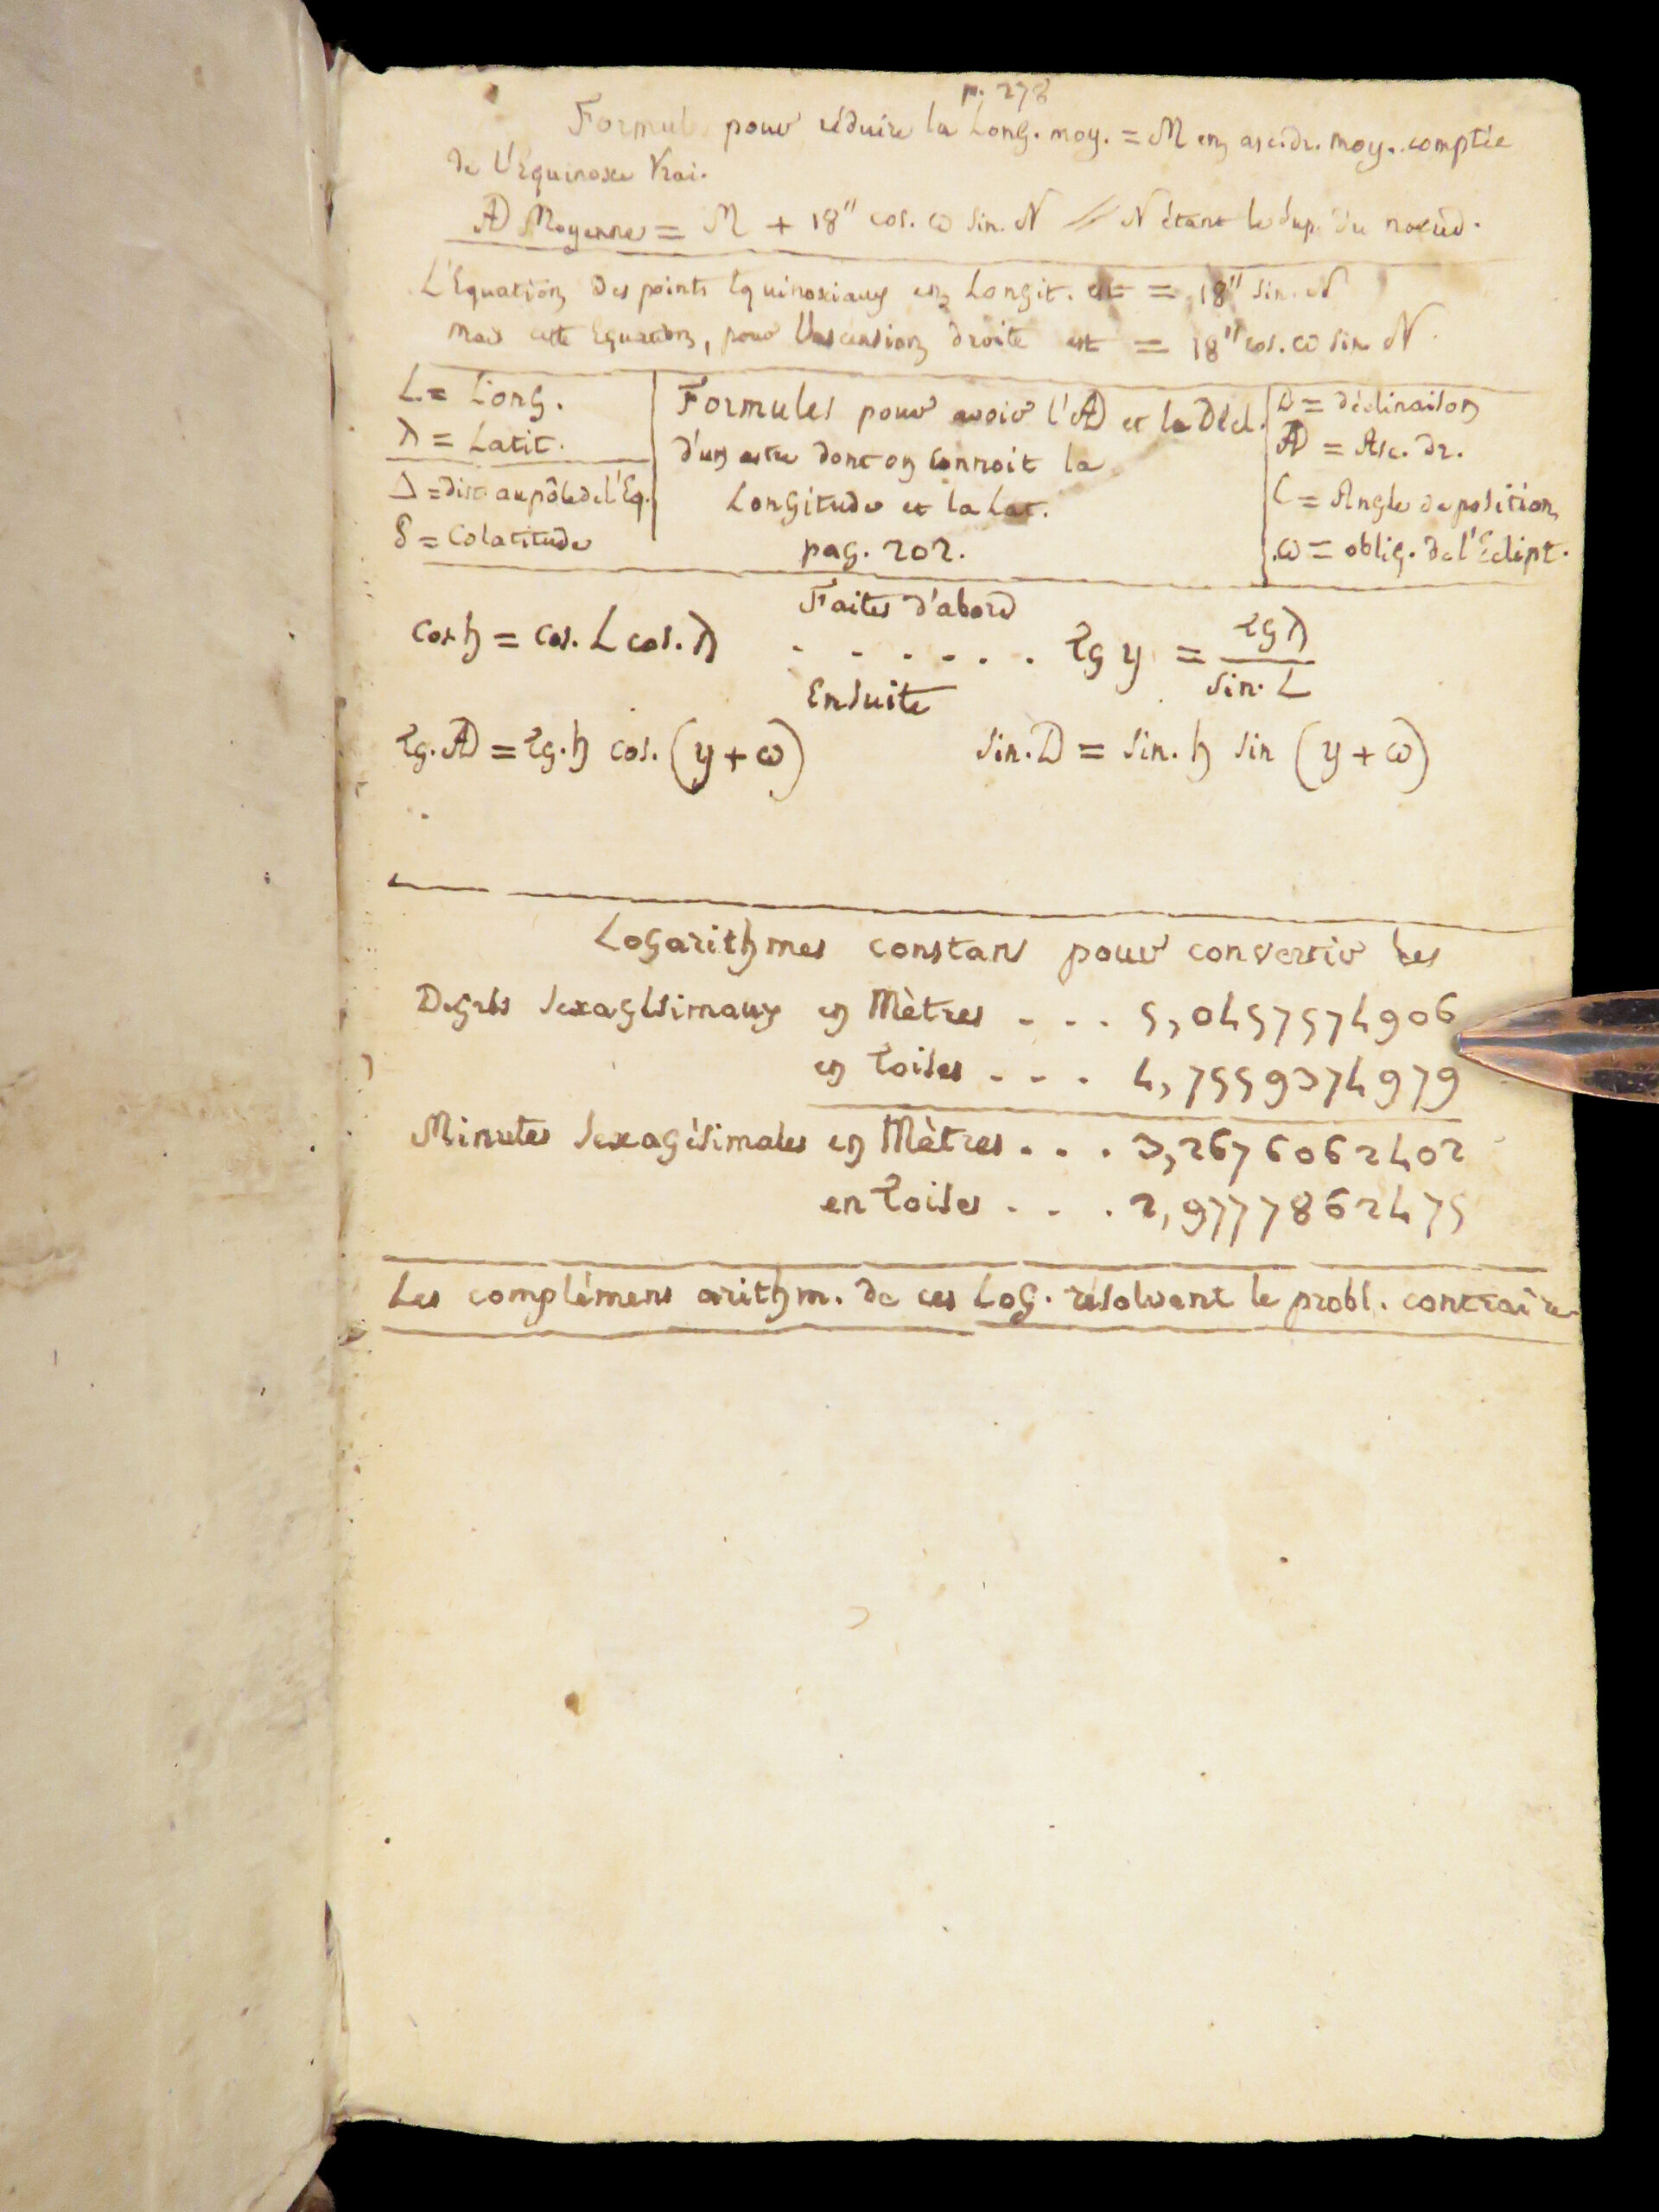 p. 278
Formule pour réduire la Long. moy. = M en asc. dr. moy. comptée
de l'Equinoxe Vrai.
AR Moyenne = M + 18" cos. ω sin. N // N étant le sup. du noeud.
L'Equation des points Equinoxiaux en Longit. est = 18" sin. N
mais cette Equation, pour l'ascension droite est = 18" cos. ω sin N.
L = Long.
λ = Latit.
Δ = dist. au pôle de l'Eq.
δ = Colatitude
Formules pour avoir l'AR et la Décl.
d'un astre dont on connoit la
Longitude et la Lat.
pag. 202.
D = déclinaison
AR = Asc. dr.
C = Angle de position
ω = obliq. de l'Eclipt.
Faites d'abord
cos. h = cos. L cos. λ . . . . . . tg y = tg λ / sin. L
Ensuite
tg. AR = tg. h cos. (y + ω) sin. D = sin. h sin (y + ω)
Logarithmes constans pour convertir les
Degrés sexagésimaux en Mètres . . . 5,0457574906
en Toises . . . 4,7559374979
Minutes sexagésimales en Mètres . . . 3,2676062402
en Toises . . . 2,9777862475
Les complémens arithm. de ces Log. résolvent le probl. contraire